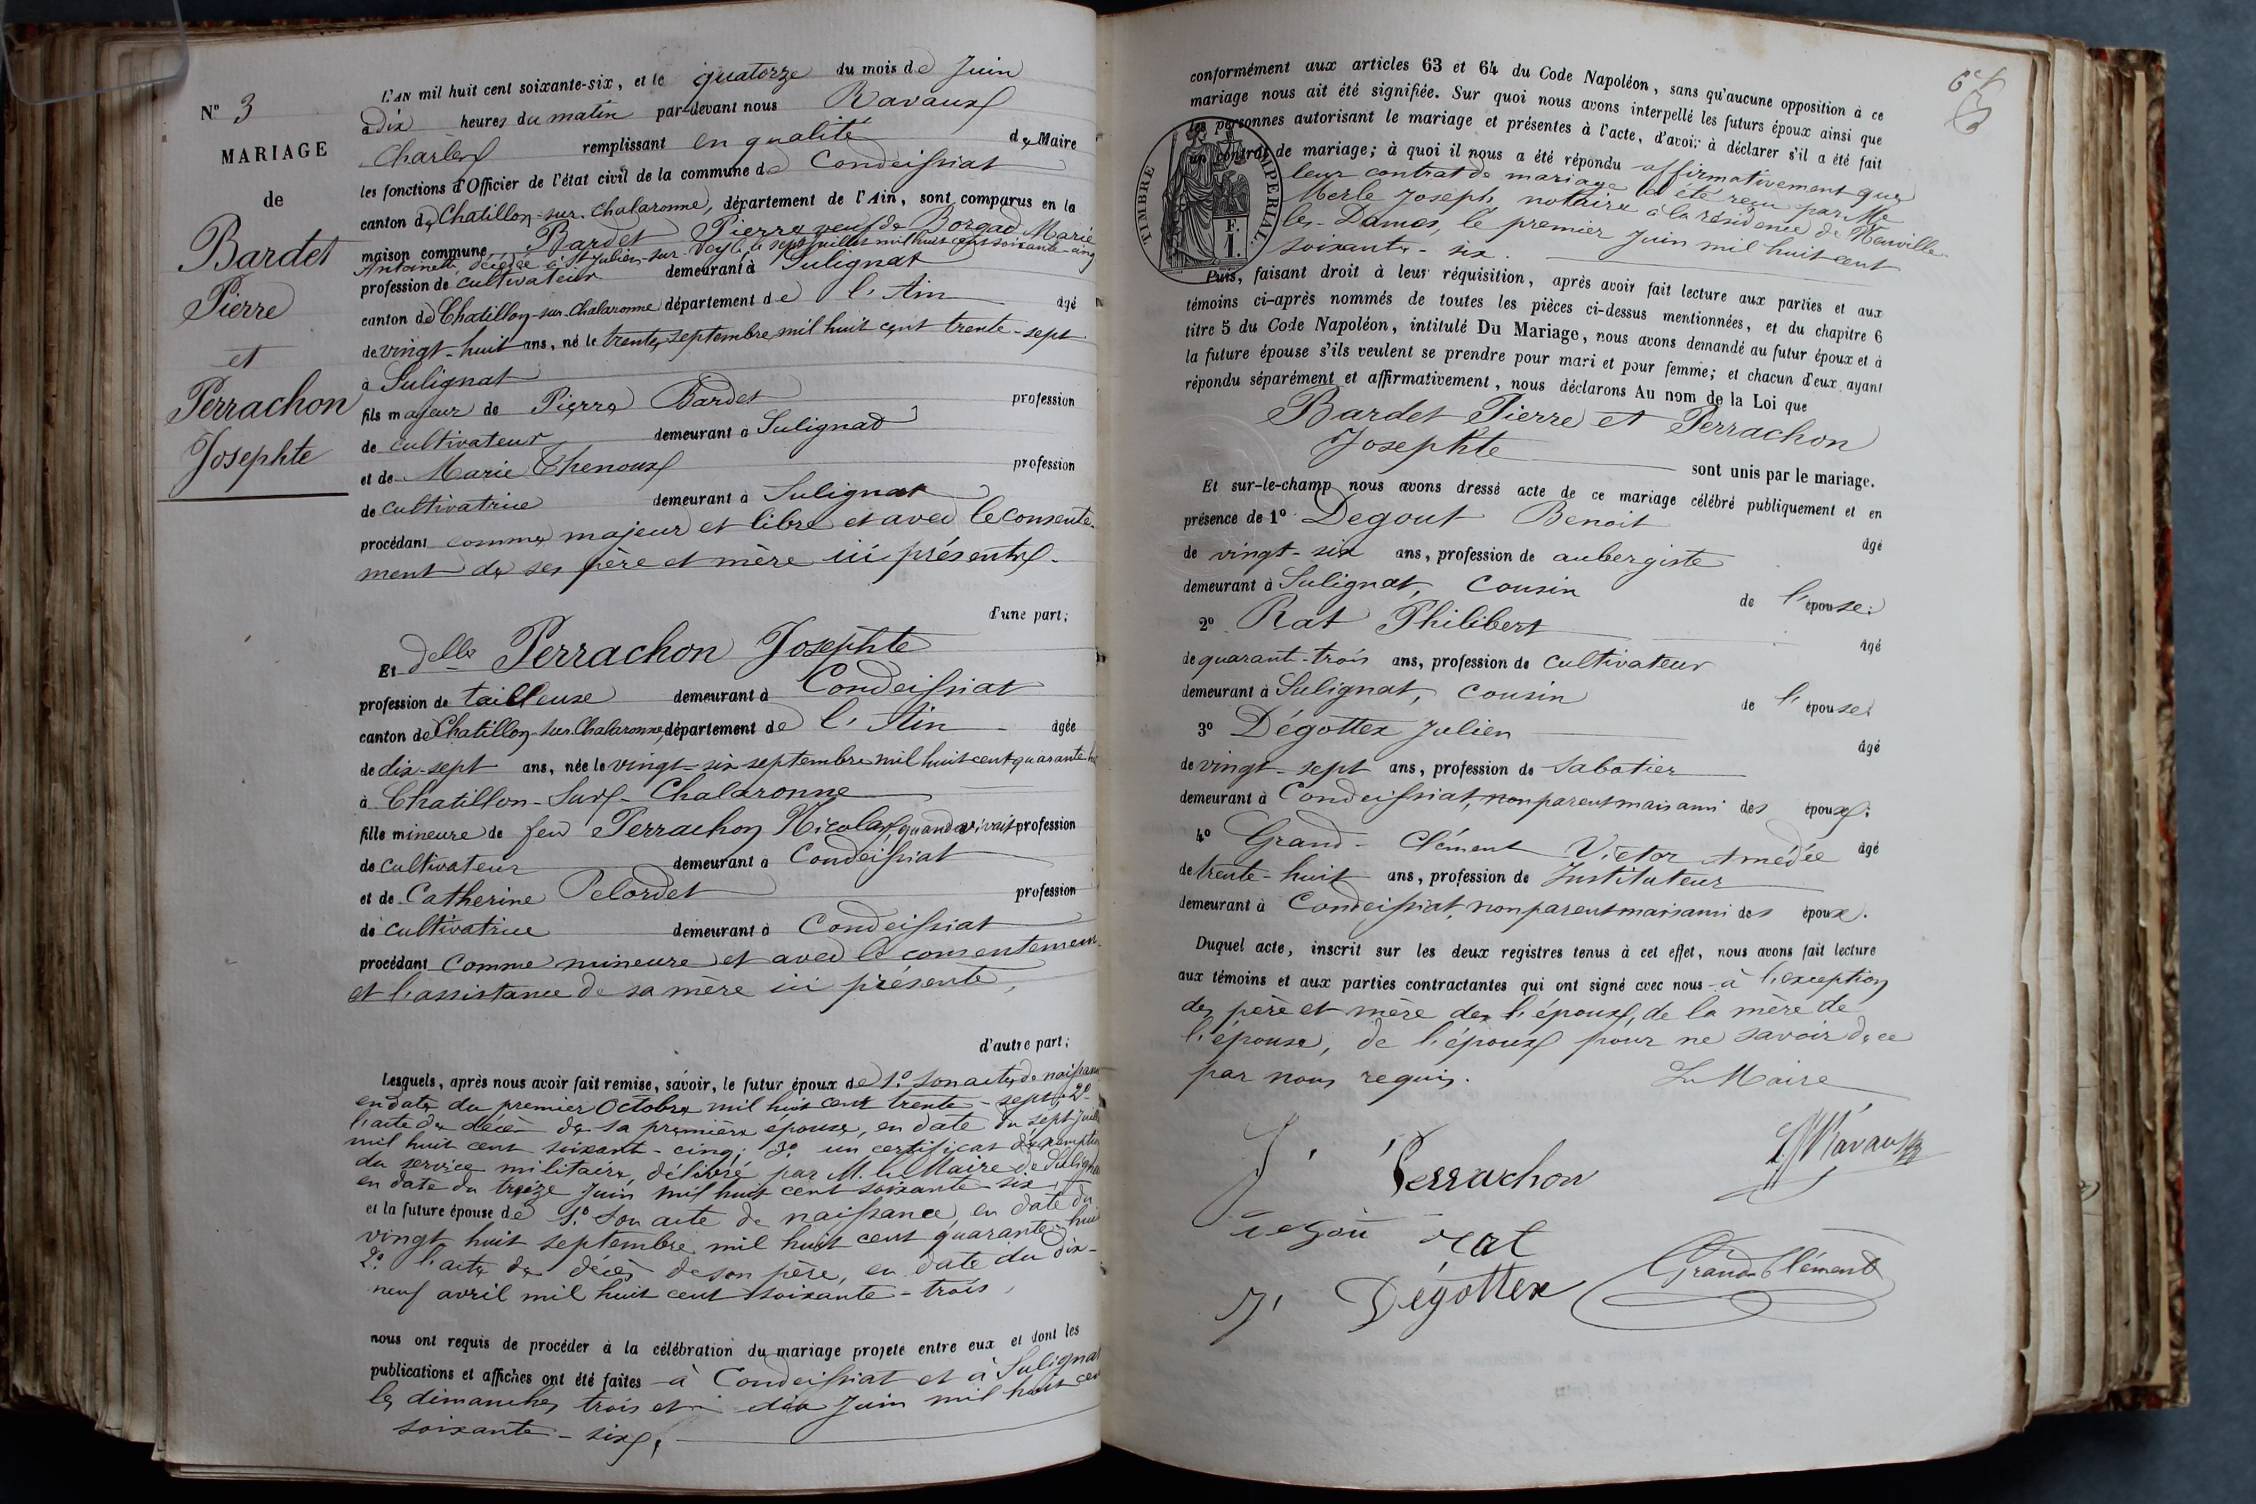 N° 3
MARIAGE
de
Bardet
Pierre
et
Perrachon
Josephte
L'AN mil huit cent soixante-six, et le quatorze du mois de Juin
à dix heures du matin par-devant nous Ravaux
Charles remplissant en qualité de Maire
les fonctions d'Officier de l'état civil de la commune de Condeissiat
canton de Chatillon-sur-Chalaronne, département de l'Ain, sont comparus en la
maison commune Bardet Pierre veuf de Borgad Marie
Antoinette, décédée à St Julien-sur-Veyle le sept juillet mil huit cent soixante-cinq
profession de cultivateur demeurant à Sulignat
canton de Chatillon-sur-Chalaronne département de l'Ain âgé
de vingt-huit ans, né le trente septembre mil huit cent trente-sept
à Sulignat
fils majeur de Pierre Bardet profession
de cultivateur demeurant à Sulignat
et de Marie Thenoux profession
de cultivatrice demeurant à Sulignat
procédant comme majeur et libre et avec le consente-
ment de ses père et mère ici présents.
d'une part;
Et delle Perrachon Josephte
profession de tailleuse demeurant à Condeissiat
canton de Chatillon-sur-Chalaronne, département de l'Ain âgée
de dix-sept ans, née le vingt-six septembre mil huit cent quarante-hu
à Chatillon-Sur-Chalaronne
fille mineure de feu Perrachon Nicolas, quand vivait profession
de cultivateur demeurant à Condeissiat
et de Catherine Pelordet profession
de cultivatrice demeurant à Condeissiat
procédant comme mineure et avec le consentemen
et l'assistance de sa mère ici présente,
d'autre part;
Lesquels, après nous avoir fait remise, savoir, le futur époux de 1° son acte de naissan
en date du premier Octobre mil huit cent trente-sept; 2°
l'acte de décès de sa première épouse, en date du sept Juill
mil huit cent soixante-cinq; 3° un certificat d'exemptio
du service militaire, délivré par M. le Maire de Sulignat
en date du treize Juin mil huit cent soixante-six,
et la future épouse de 1° son acte de naissance, en date du
vingt huit septembre mil huit cent quarante-huit
2° l'acte de décès de son père, en date du dix-
neuf avril mil huit cent soixante-trois,
nous ont requis de procéder à la célébration du mariage projeté entre eux et dont les
publications et affiches ont été faites à Condeissiat et à Sulignat
les dimanches trois et dix Juin mil huit cen
soixante-six,
64
conformément aux articles 63 et 64 du Code Napoléon, sans qu'aucune opposition à ce
mariage nous ait été signifiée. Sur quoi nous avons interpellé les futurs époux ainsi que
les personnes autorisant le mariage et présentes à l'acte, d'avoir à déclarer s'il a été fait
un contrat de mariage; à quoi il nous a été répondu affirmativement que
leur contrat de mariage a été reçu par Me
Merle Joseph, notaire à la résidence de Neuville-
les-Dames, le premier Juin mil huit cent
soixante-six.
TIMBRE IMPERIAL
1 F.
Puis, faisant droit à leur réquisition, après avoir fait lecture aux parties et aux
témoins ci-après nommés de toutes les pièces ci-dessus mentionnées, et du chapitre 6
titre 5 du Code Napoléon, intitulé Du Mariage, nous avons demandé au futur époux et à
la future épouse s'ils veulent se prendre pour mari et pour femme; et chacun d'eux ayant
répondu séparément et affirmativement, nous déclarons Au nom de la Loi que
Bardet Pierre et Perrachon
Josephte sont unis par le mariage.
Et sur-le-champ nous avons dressé acte de ce mariage célébré publiquement et en
présence de 1° Degout Benoit âgé
de vingt-six ans, profession de aubergiste
demeurant à Sulignat, cousin de l'épouse;
2° Rat Philibert âgé
de quarante-trois ans, profession de cultivateur
demeurant à Sulignat, cousin de l'épouse;
3° Dégottex Julien âgé
de vingt-sept ans, profession de sabotier
demeurant à Condeissiat, non parent mais ami des époux;
4° Grand-Clément Victor Amédée âgé
de trente-huit ans, profession de Instituteur
demeurant à Condeissiat, non parent mais ami des époux.
Duquel acte, inscrit sur les deux registres tenus à cet effet, nous avons fait lecture
aux témoins et aux parties contractantes qui ont signé avec nous à l'exception
des père et mère de l'époux, de la mère de
l'épouse, de l'époux pour ne savoir de ce
par nous requis.
Le Maire
J. Perrachon
Ravaux
degou rat
Grand-Clément
J. Dégottex